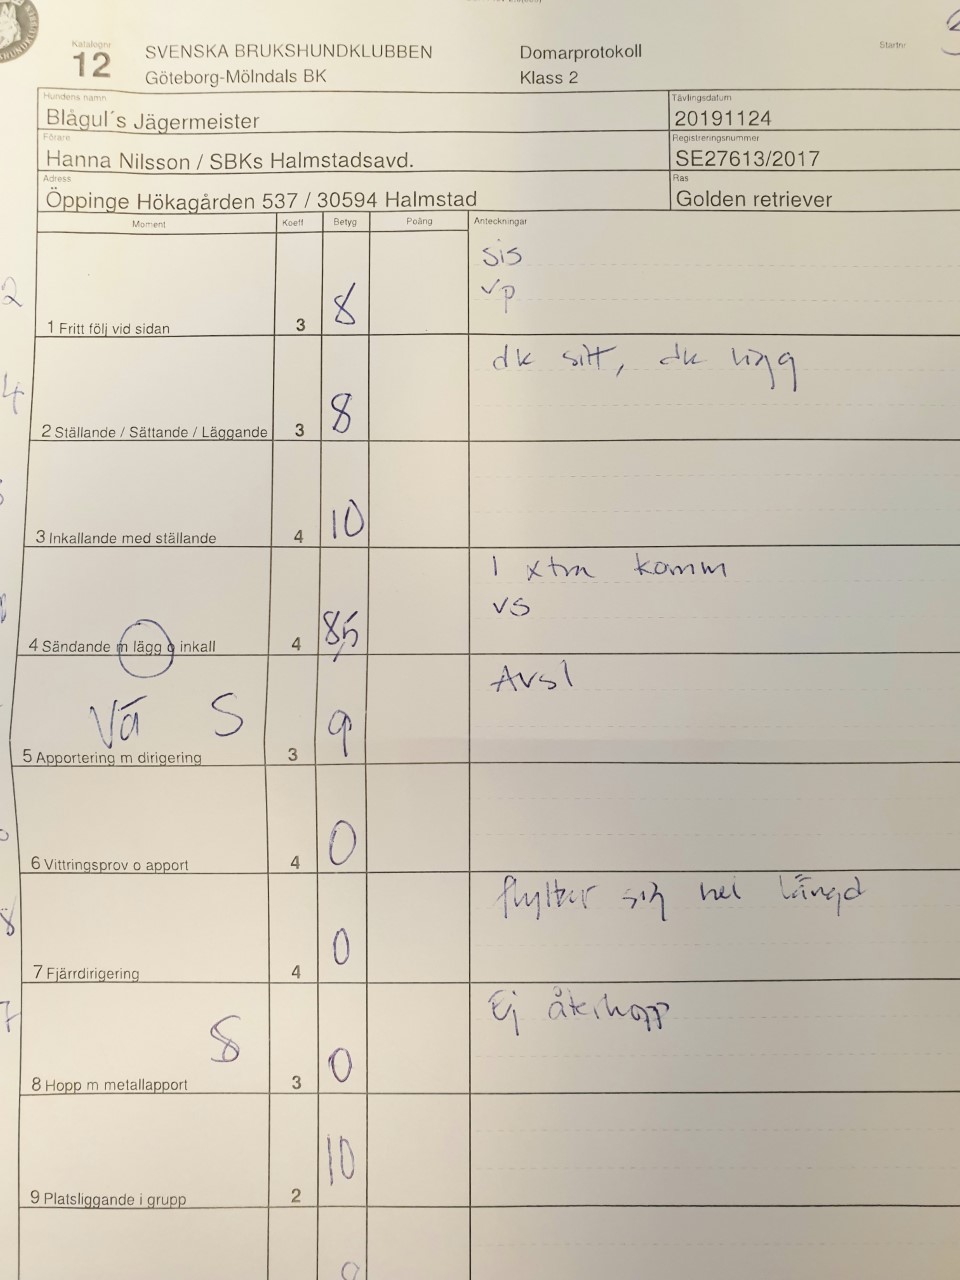 Katalognr
12
SVENSKA BRUKSHUNDKLUBBEN
Göteborg-Mölndals BK
Domarprotokoll
Klass 2
Startnr
Hundens namn
Blågul´s Jägermeister
Tävlingsdatum
20191124
Förare
Hanna Nilsson / SBKs Halmstadsavd.
Registreringsnummer
SE27613/2017
Adress
Öppinge Hökagården 537 / 30594 Halmstad
Ras
Golden retriever
Moment Koeff Betyg Poäng Anteckningar
sis
vp
1 Fritt följ vid sidan 3 8
dk sitt, dk ligg
2 Ställande / Sättande / Läggande 3 8
3 Inkallande med ställande 4 10
1 xtra komm
vs
4 Sändande m lägg o inkall 4 8,5
Avsl
Vä S
5 Apportering m dirigering 3 9
6 Vittringsprov o apport 4 0
flyttar sig hel längd
7 Fjärrdirigering 4 0
Ej återhopp
S
8 Hopp m metallapport 3 0
9 Platsliggande i grupp 2 10